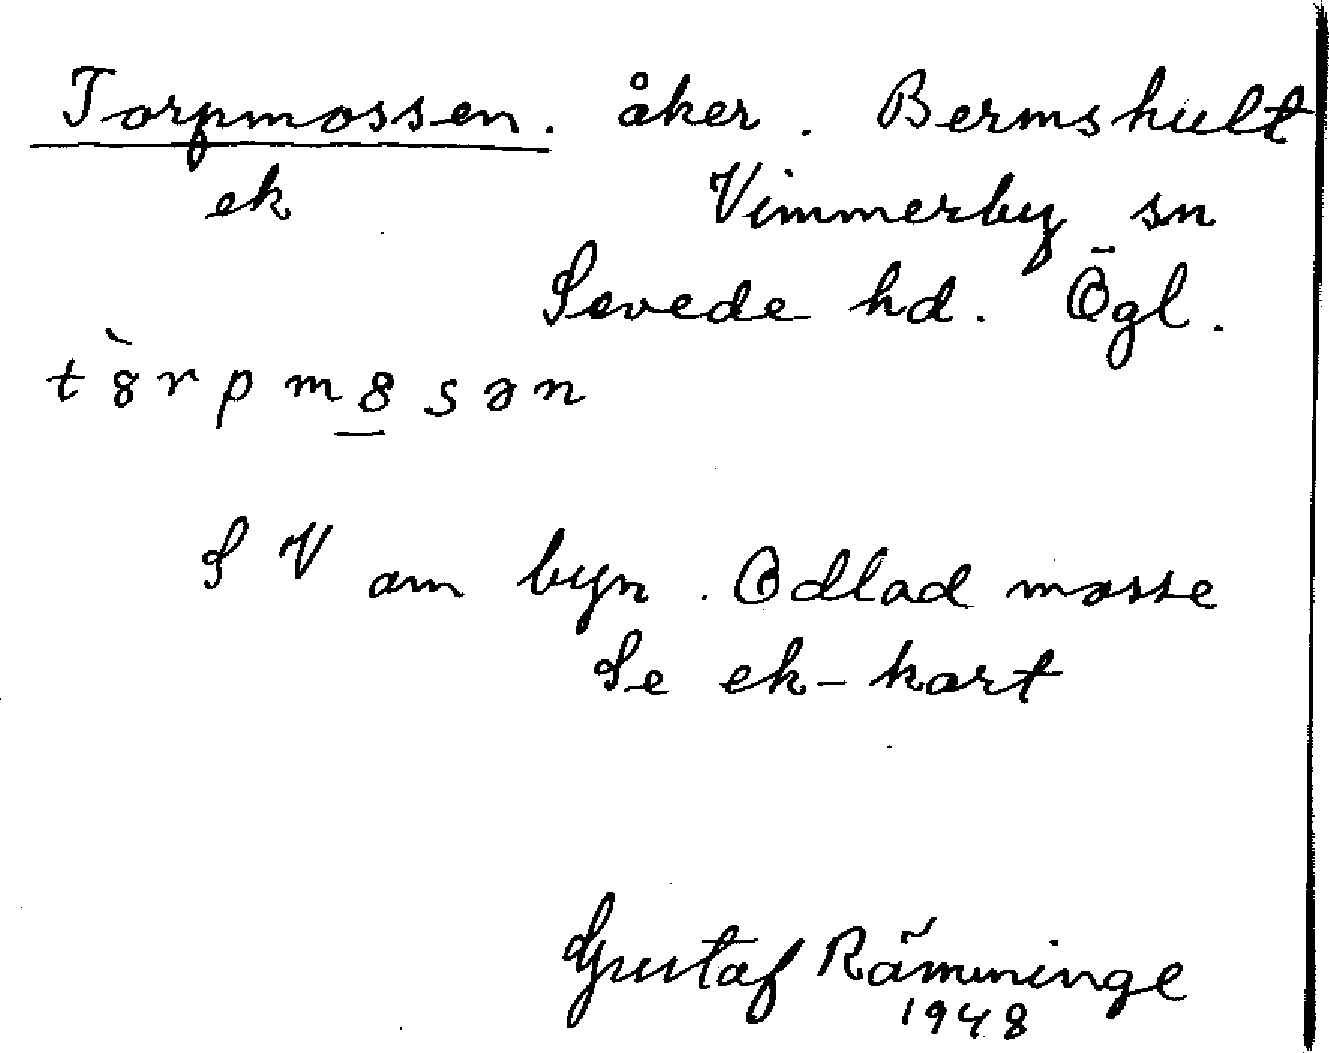 Torpmossen. åker. Bermshult
ek Vimmerby sn
Sevede hd. Ögl.
t8̀rpm8sən
SV om byn. Odlad mosse
Se ek-kart
Gustaf Rämninge
1948